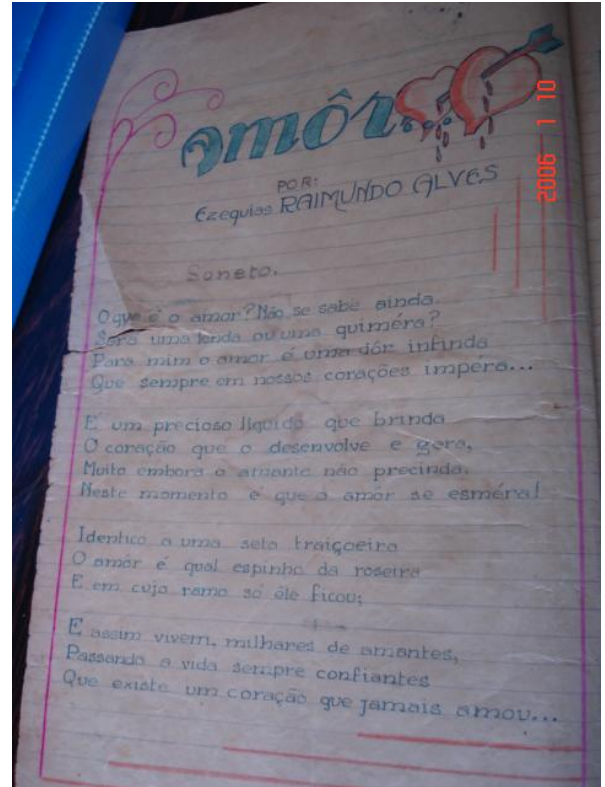 amôr...
POR:
Ezequias RAIMUNDO ALVES
Soneto.
O que é o amor? Não se sabe ainda.
Será uma lenda ou uma quiméra?
Para mim o amor é uma dôr infinda
Que sempre em nossos corações impéra...
É um precioso líquido que brinda
O coração que o desenvolve e gera,
Muito embora o amante não precinda.
Neste momento é que o amôr se esméra!
Identico a uma seta traiçoeira
O amôr é qual espinho da roseira
E em cujo ramo só êle ficou;
E assim vivem, milhares de amantes,
Passando a vida sempre confiantes
Que existe um coração que jamais amou...
2006 1 10